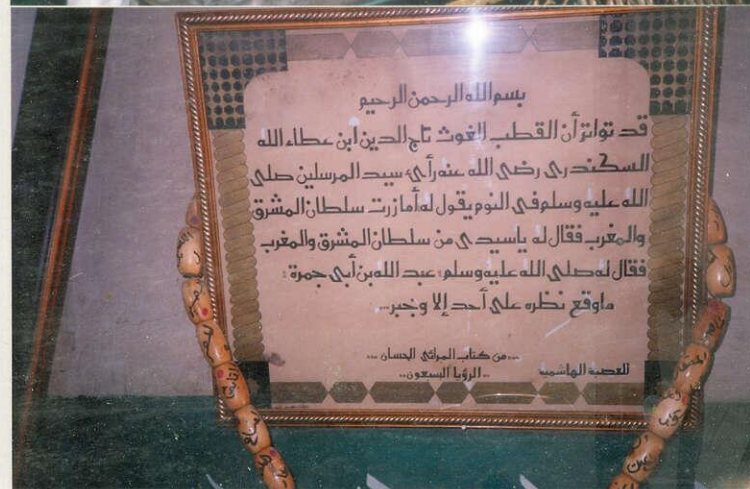 بسم الله الرحمن الرحيم
قد تواتر أن القطب الغوث تاج الدين ابن عطاء الله
السكندرى رضى الله عنه رأى سيد المرسلين صلى
الله عليه وسلم فى النوم يقول له أما زرت سلطان المشرق
والمغرب فقال له ياسيدى من سلطان المشرق والمغرب
فقال له صلى الله عليه وسلم: عبد الله بن أبى جمرة:
ماوقع نظره على أحد إلا وجبر...
...من كتاب المرائى الحسان ...
للعصبة الهاشمية
.. الرؤيا السبعون...